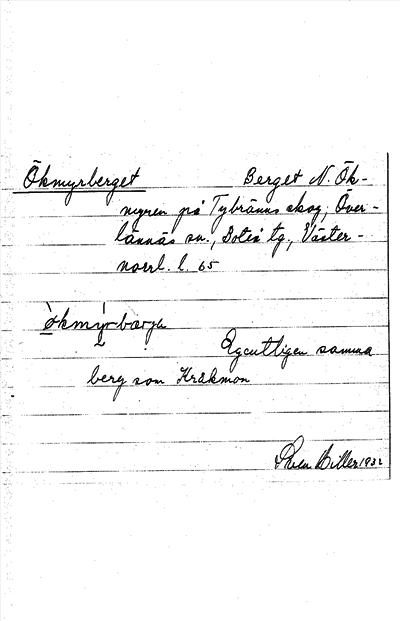 Ökmyrberget Berget N. Ök-
myren på Tybränns skog, Över-
lännäs sn., Boteå tg., Väster-
norrl. l. 65
ökmýrbærje
Egentligen samma
berg som Kråkmon
Sven Biller 1932